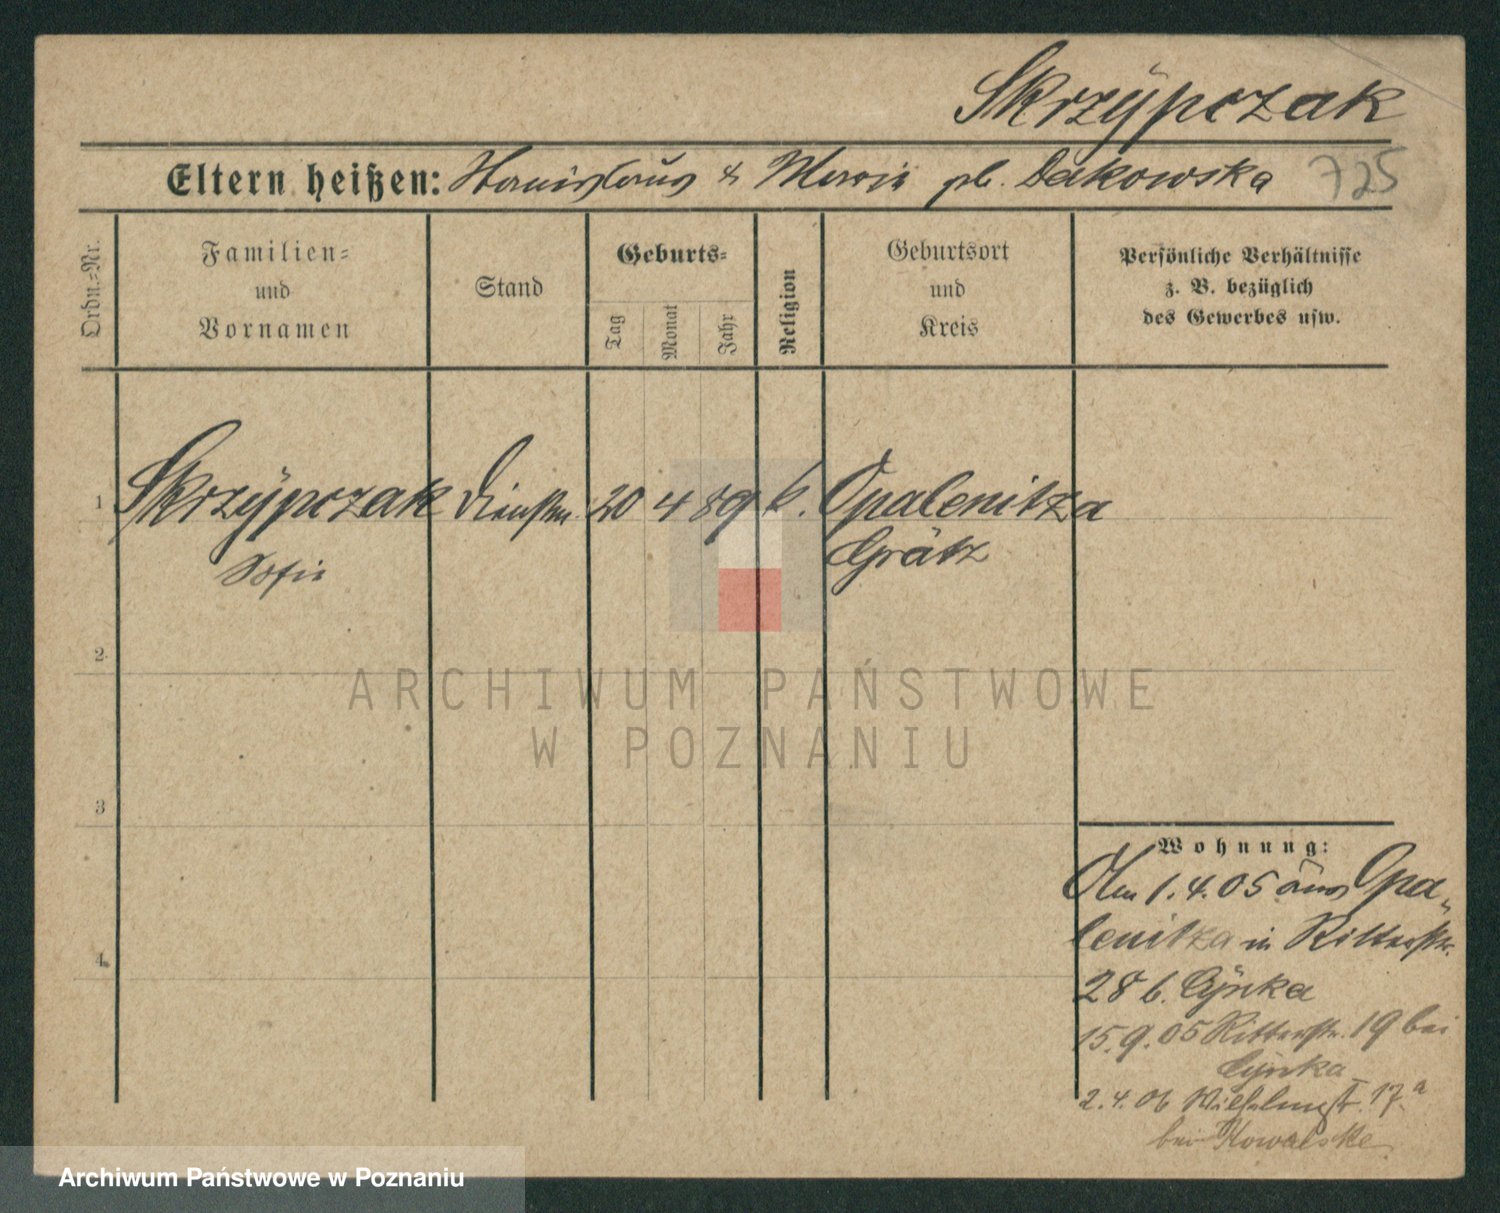 Skrzÿpczak
Eltern heißen: Stanislaus & Marie gb. Dakowska 725
Ordn.-Nr.
Familien-
und
Vornamen
Stand
Geburts-
Tag
Monat
Jahr
Religion
Geburtsort
und
Kreis
Persönliche Verhältnisse
z. B. bezüglich
des Gewerbes usw.
1 Skrzÿpczak Dienstm. 20 4 89 k. Opalenitza
Sofie Grätz
2
3
4
ARCHIWUM PAŃSTWOWE
W POZNANIU
Wohnung:
Am 1.4.05 aus Opa-
lenitza in Ritterstr.
28 b.
15.9.05 Ritterstr. 19 bei
2.4.06 Wilhelmstr. 17a
bei Kowalske
Archiwum Państwowe w Poznaniu